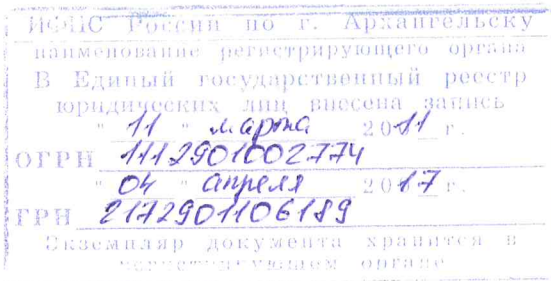 ИФНС России по г. Архангельску
наименование регистрирующего органа
В Единый государственный реестр
юридических лиц внесена запись
" 11 " марта 2011 г.
ОГРН 1112901002774
" 04 " апреля 2017 г.
ГРН 2172901106189
Экземпляр документа хранится в
регистрирующем органе